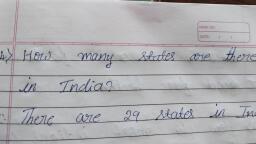 How many states are there
in India?
There are 29 states in In